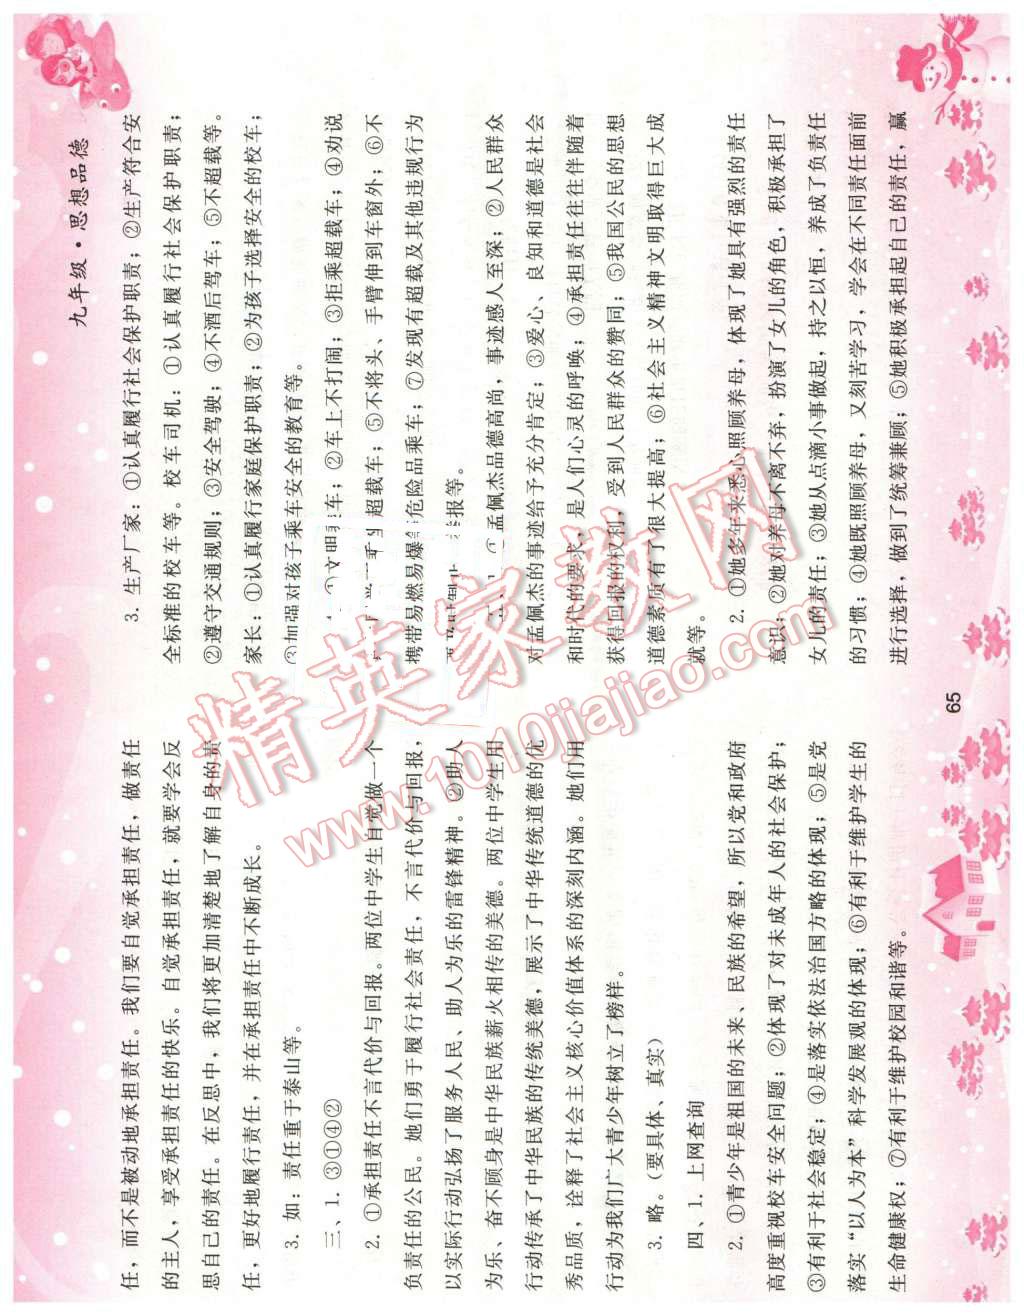 九年级·思想品德
任，而不是被动地承担责任。我们要自觉承担责任，做责任
的主人，享受承担责任的快乐。自觉承担责任，就要学会反
思自己的责任。在反思中，我们将更加清楚地了解自身的责
任，更好地履行责任，并在承担责任中不断成长。
3. 如：责任重于泰山等。
三、1. ③①④②
2. ①承担责任不言代价与回报。两位中学生自觉做一个
负责任的公民。她们勇于履行社会责任，不言代价与回报，
以实际行动弘扬了服务人民、助人为乐的雷锋精神。②助人
为乐、奋不顾身是中华民族薪火相传的美德。两位中学生用
行动传承了中华民族的传统美德，展示了中华传统道德的优
秀品质，诠释了社会主义核心价值体系的深刻内涵。她们用
行动为我们广大青少年树立了榜样。
3. 略。（要具体、真实）
四、1. 上网查询
2. ①青少年是祖国的未来、民族的希望，所以党和政府
高度重视校车安全问题；②体现了对未成年人的社会保护；
③有利于社会稳定；④是落实依法治国方略的体现；⑤是党
落实“以人为本”科学发展观的体现；⑥有利于维护学生的
生命健康权；⑦有利于维护校园和谐等。
3. 生产厂家：①认真履行社会保护职责；②生产符合安
全标准的校车等。校车司机：①认真履行社会保护职责；
②遵守交通规则；③安全驾驶；④不酒后驾车；⑤不超载等。
家长：①认真履行家庭保护职责；②为孩子选择安全的校车；
③加强对孩子乘车安全的教育等。
①文明乘车；②车上不打闹；③拒乘超载车；④劝说
超载车；⑤不将头、手臂伸到车窗外；⑥不
携带易燃易爆等危险品乘车；⑦发现有超载及其他违规行为
举报等。
①孟佩杰品德高尚，事迹感人至深；②人民群众
对孟佩杰的事迹给予充分肯定；③爱心、良知和道德是社会
和时代的要求，是人们心灵的呼唤；④承担责任往往伴随着
获得回报的权利，受到人民群众的赞同；⑤我国公民的思想
道德素质有了很大提高；⑥社会主义精神文明取得巨大成
就等。
2. ①她多年来悉心照顾养母，体现了她具有强烈的责任
意识；②她对养母不离不弃，扮演了女儿的角色，积极承担了
女儿的责任；③她从点滴小事做起，持之以恒，养成了负责任
的习惯；④她既照顾养母，又刻苦学习，学会在不同责任面前
进行选择，做到了统筹兼顾；⑤她积极承担起自己的责任，赢
65
精英家教网
www.1010jiajiao.com